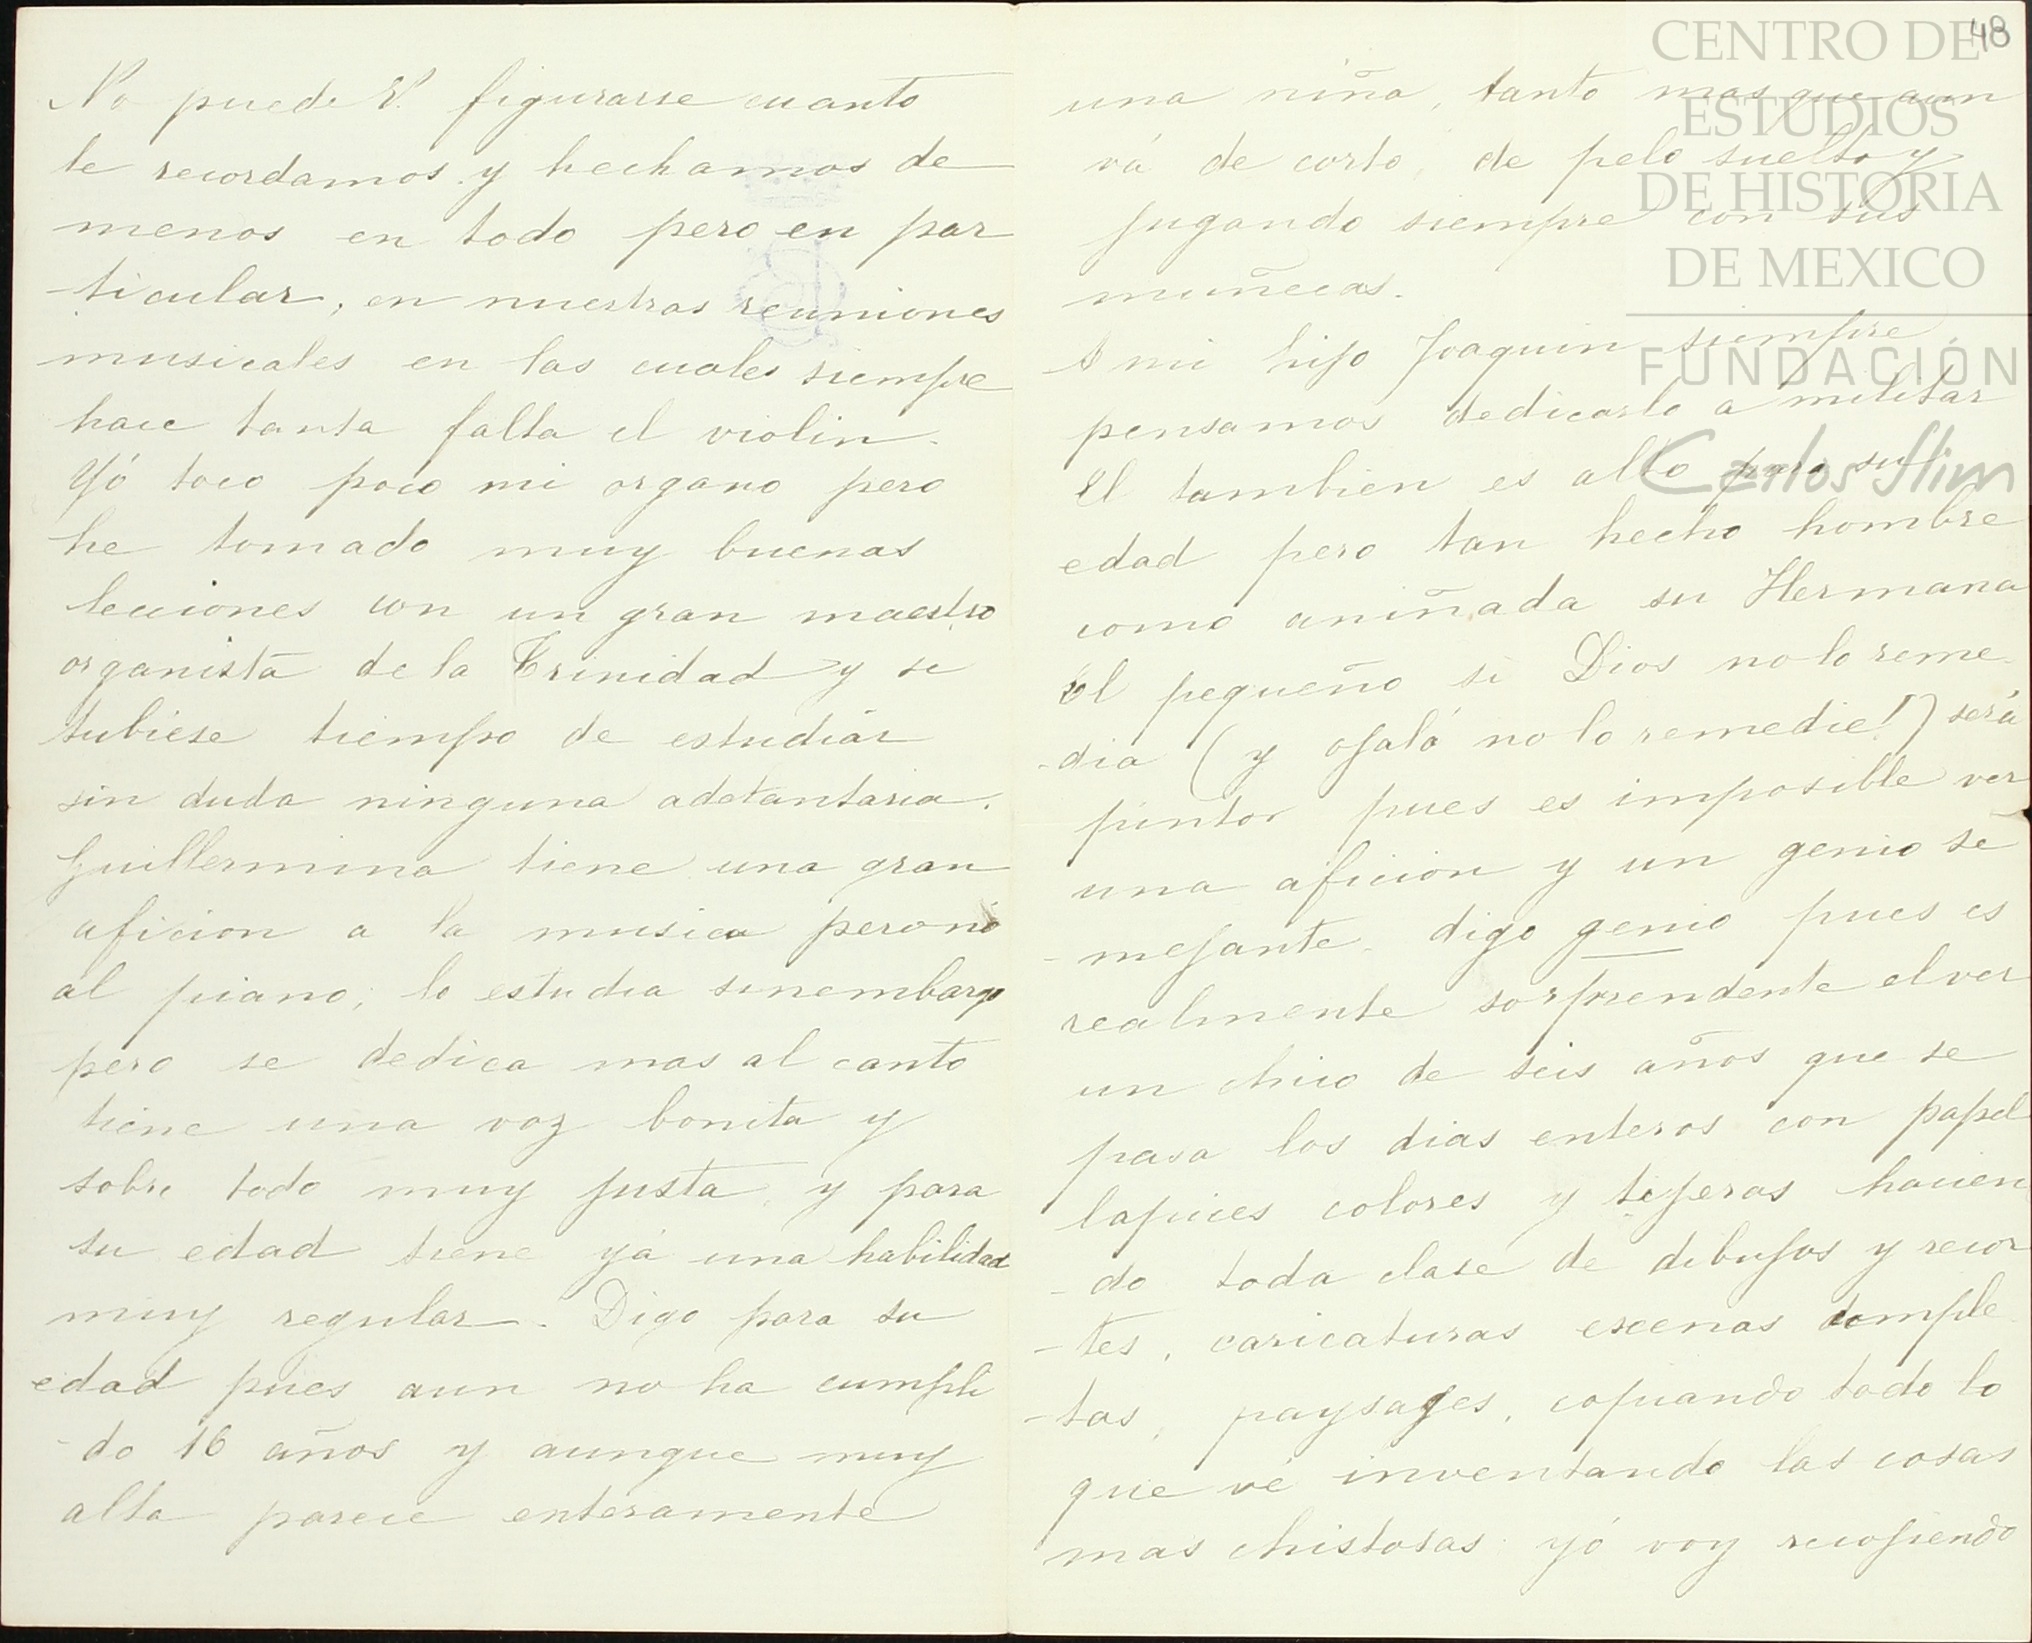 No puede V. figurarse cuanto
le recordamos y hechamos de
menos en todo pero en par
-ticular, en nuestras reuniones
musicales en las cuales siempre
hace tanta falta el violin.
Yó toco poco mi organo pero
he tomado muy buenas
lecciones con un gran maestro
organista de la Trinidad y si
tubiese tiempo de estudiar
sin duda ninguna adelantaria.
Guillermina tiene una gran
aficion a la musica pero nó
al piano; lo estudia sinembargo
pero se dedica mas al canto
tiene una voz bonita y
sobre todo muy justa, y para
su edad tiene yá una habilidad
muy regular. Digo para su
edad pues aun no ha cumpli
-do 16 años y aunque muy
alta parece enteramente
48
una niña, tanto mas que aun
vá de corto, de pelo suelto y
jugando siempre con sus
muñecas.
A mi hijo Joaquin siempre
pensamos dedicarlo a militar
el tambien es alto para su
edad pero tan hecho hombre
como aniñada su Hermana
El pequeño si Dios no lo reme
-dia (y ojalá no lo remedie!) será
pintor pues es imposible ver
una aficion y un genio se
-mejante. digo genio pues es
realmente sorprendente el ver
un chico de seis años que se
pasa los dias enteros con papel
lapices colores y tijeras hacien
-do toda clase de dibujos y recor
-tes, caricaturas escenas comple
-tas, paysages, copiando todo lo
que vé inventando las cosas
mas chistosas yó voy recojiendo
CENTRO DE
ESTUDIOS
DE HISTORIA
DE MEXICO
FUNDACIÓN
Carlos Slim